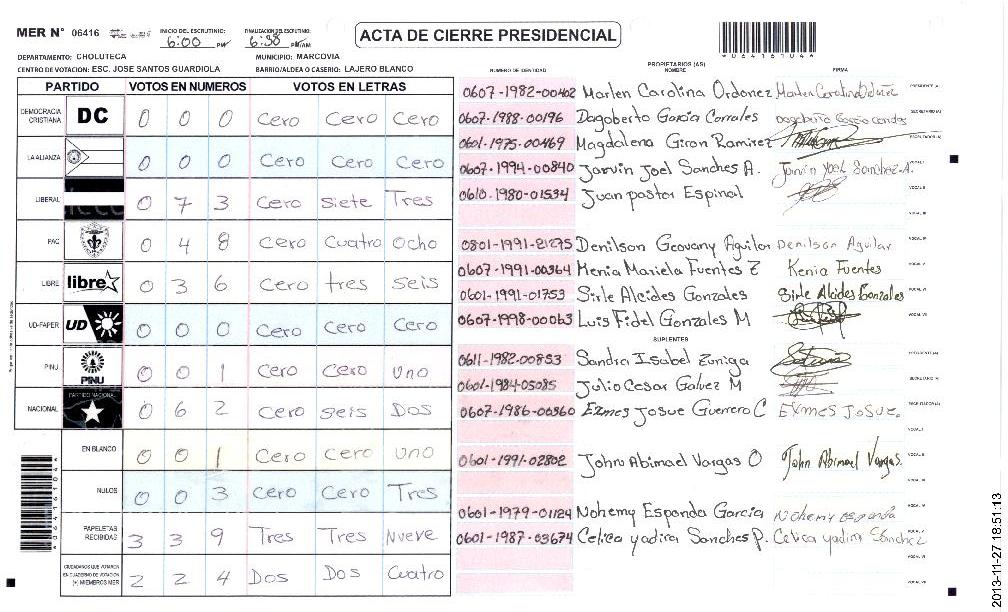 MER N° 06416 INICIO DEL ESCRUTINIO: 6:00 PM FINALIZACION DEL ESCRUTINIO: 6:38 PM/AM ACTA DE CIERRE PRESIDENCIAL
*06416104*
DEPARTAMENTO: CHOLUTECA MUNICIPIO: MARCOVIA
CENTRO DE VOTACION: ESC. JOSE SANTOS GUARDIOLA BARRIO/ALDEA O CASERIO: LAJERO BLANCO
PARTIDO VOTOS EN NUMEROS VOTOS EN LETRAS
DEMOCRACIA CRISTIANA DC 0 0 0 Cero Cero Cero
LA ALIANZA 0 0 0 Cero Cero Cero
LIBERAL 0 7 3 Cero Siete Tres
PAC 0 4 8 Cero Cuatro Ocho
LIBRE libre 0 3 6 Cero tres seis
UD-FAPER UD 0 0 0 Cero Cero Cero
PINU PINU 0 0 1 Cero Cero Uno
NACIONAL PARTIDO NACIONAL 0 6 2 Cero seis Dos
EN BLANCO 0 0 1 Cero Cero Uno
NULOS 0 0 3 Cero Cero Tres
PAPELETAS RECIBIDAS 3 3 9 Tres Tres Nueve
CIUDADANOS QUE VOTARON EN CUADERNO DE VOTACION (+) MIEMBROS MER 2 2 4 Dos Dos Cuatro
*06416104*
NUMERO DE IDENTIDAD PROPIETARIOS (AS) NOMBRE FIRMA
0607-1982-00402 Marlen Carolina Ordonez PRESIDENTE (A)
0607-1988-00196 Dagoberto Garcia Corrales SECRETARIO (A)
0601-1975-00469 Magdalena Giron Ramirez ESCRUTADOR (A)
0607-1994-00840 Jarvin Joel Sanches A. Jarvin Yoel Sanchez-A. VOCAL I
0610-1980-01534 Juan pastor Espinal VOCAL II
VOCAL III
0801-1991-21275 Denilson Geovany Aguilar Denilson Aguilar VOCAL IV
0607-1991-00364 Kenia Mariela Fuentes Z Kenia Fuentes VOCAL V
0601-1991-01753 Sirle Alcides Gonzales Sirle Alcides Gonzales VOCAL VI
0607-1998-00063 Luis Fidel Gonzales M VOCAL VII
SUPLENTES
0611-1982-00853 Sandra Isabel Zuniga PRESIDENTE (A)
0601-1984-05085 Julio Cesar Galvez M SECRETARIO (A)
0607-1986-00360 Ezmes Josue Guerrero C EXMES JOSUE. ESCRUTADOR (A)
VOCAL I
0601-1991-02802 John Abimael Vargas O John Abimael Vargas. VOCAL II
VOCAL III
0601-1979-01124 Nohemy Esponda Garcia Nohemy Esponda VOCAL IV
0601-1987-03674 Celica yadira Sanches P. Celica yadira Sánchez VOCAL V
VOCAL VI
VOCAL VII
2013-11-27 18:51:13